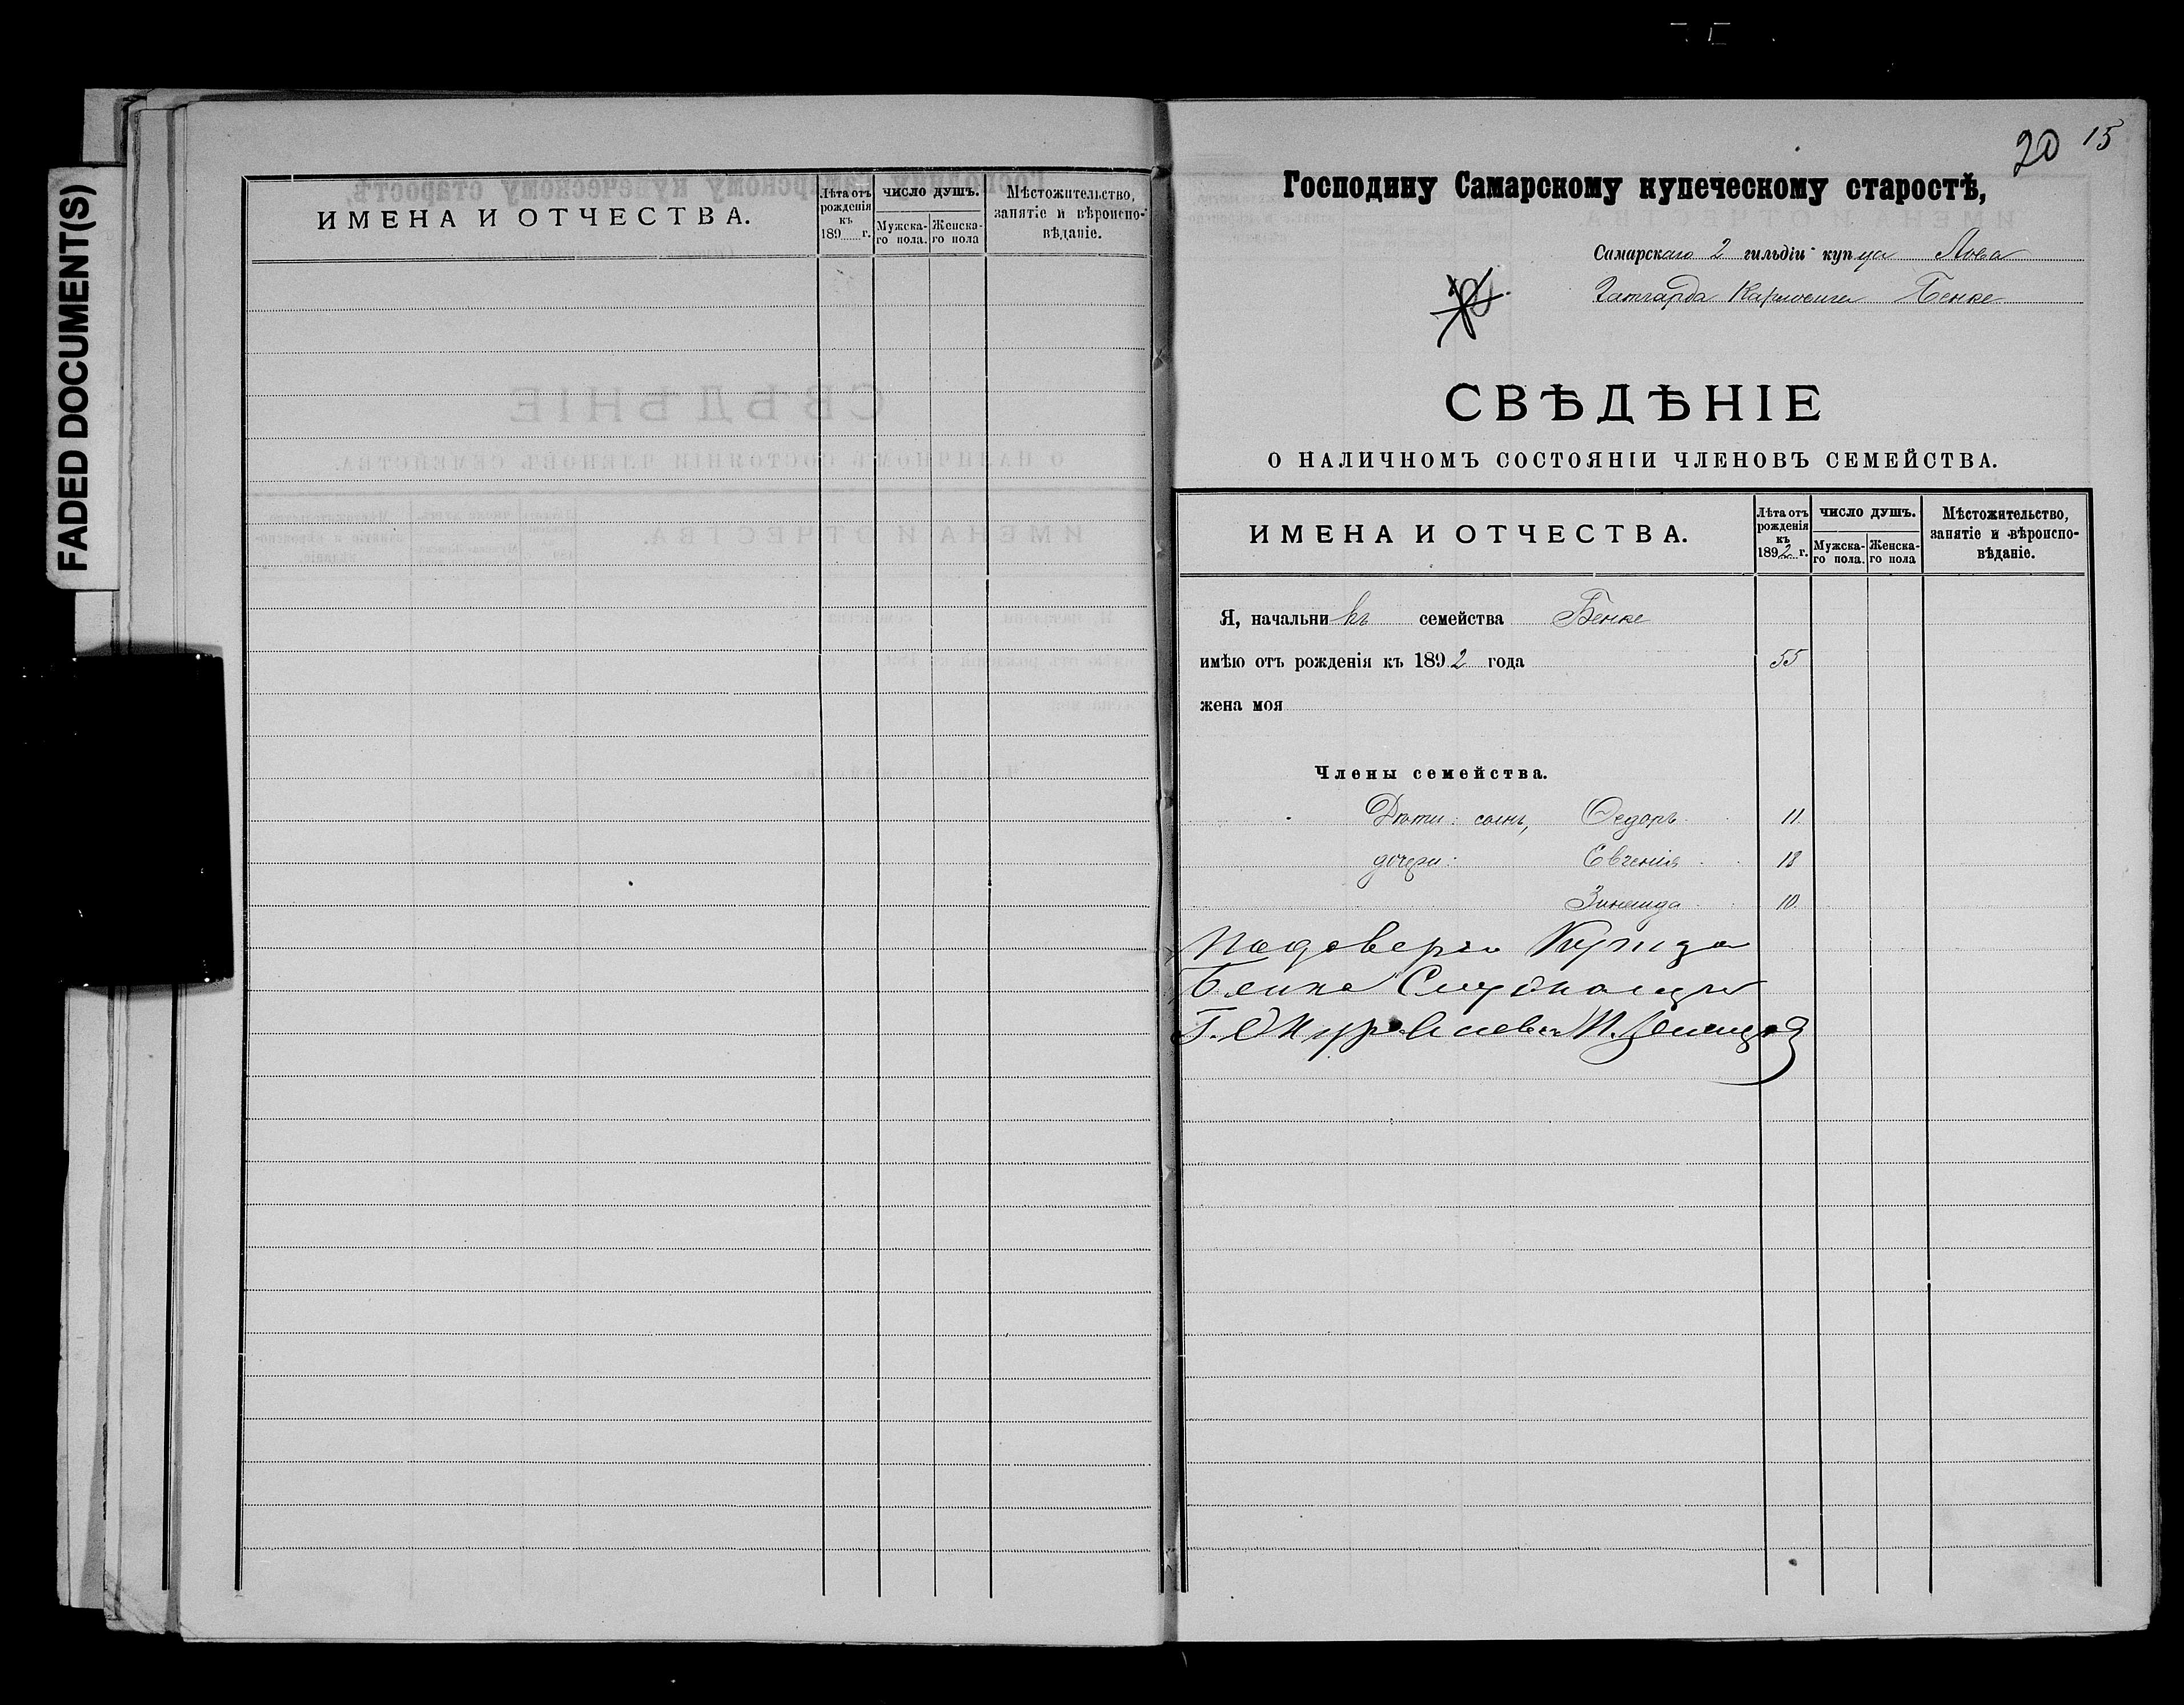 FADED DOCUMENT(S)
ИМЕНА И ОТЧЕСТВА.
Лѣта отъ рожденія къ 189 г.
число душъ.
Мужска-го пола.
Женска-го пола
Мѣстожительство, занятіе и вѣроиспо-вѣданіе.
20 15
Господину Самарскому купеческому старостѣ,
Самарскаго 2 гильдіи купца Льва
Готгарда Карловича Бенке
СВѢДѢНІЕ
О НАЛИЧНОМЪ СОСТОЯНІИ ЧЛЕНОВЪ СЕМЕЙСТВА.
ИМЕНА И ОТЧЕСТВА.
Лѣта отъ рожденія къ 1892 г.
число душъ.
Мужска-го пола.
Женска-го пола
Мѣстожительство, занятіе и вѣроиспо-вѣданіе.
Я, начальникъ семейства Бенке
имѣю отъ рожденія къ 1892 года 55
жена моя
Члены семейства.
Дѣти: сынъ, Ѳедоръ 11
дочери: Евгенія 18
Зинаида 10
По доверію Купца
Бенке